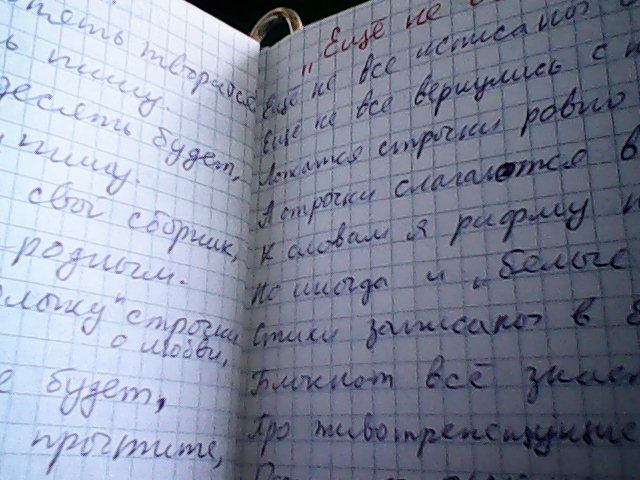 пять
ь пишу.
десять будет,
пишу.
свой сборник,
родным.
строчки
с любви,
будет,
прочтите,
"Ещё не
Ещё не все исписаны
Ещё не все вернулись с
Ложатся строчки ровно
А строчки слагаются в
К словам я рифму
Но иногда и "белые
Стихи записаны в б
Блокнот всё знает
Про животрепещущие